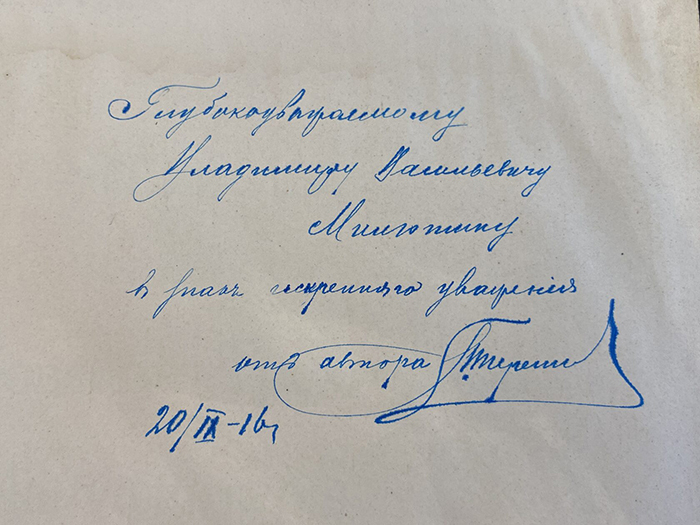 Глубокоуважаемому
Владимиру Васильевичу
Милютину
в знак искреннего уважения
отъ автора
20/IX-16г